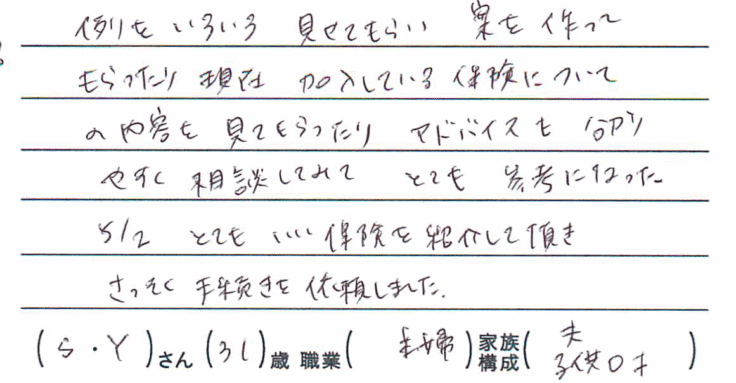 例をいろいろ 見せてもらい 案を作って
もらったり 現在 加入している 保険について
の内容を 見てもらったり アドバイスも 分かり
やすく 相談してみて とても 参考になった
5/2 とても いい 保険を紹介して頂き
さっそく 手続きを 依頼しました.
(S・Y)さん(31)歳 職業(主婦)家族構成(夫 子供0才)